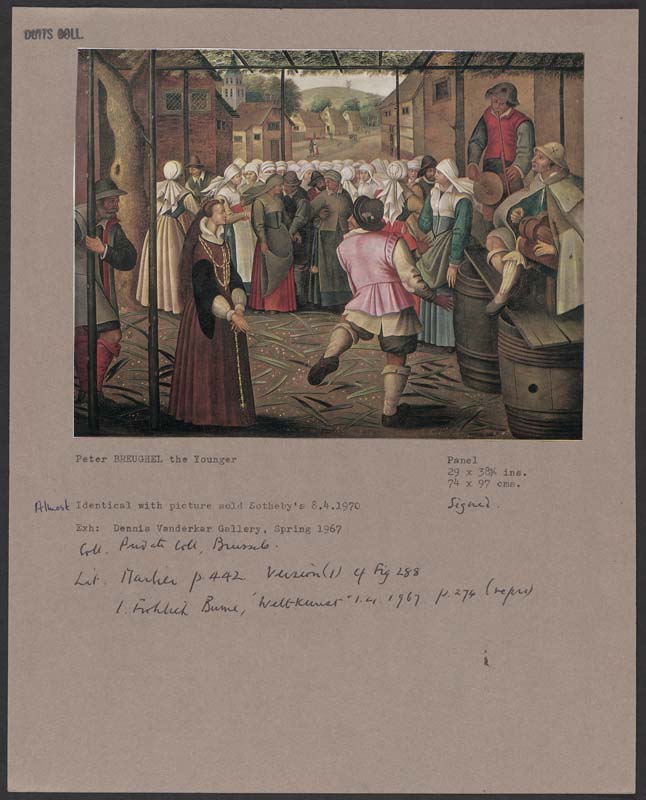 DUITS COLL.
Peter BREUGHEL the Younger
Panel
29 x 38¼ ins.
74 x 97 cms.
Signed.
Almost Identical with picture sold Sotheby's 8.4.1970
Exh: Dennis Vanderkar Gallery, Spring 1967
Coll. Private Coll, Brussels.
Lit. Marlier p.442 Version (1) cf Fig 288
I. Fröhlich Bume, "Weltkunst" 1.4.1967 p.274 (repro)